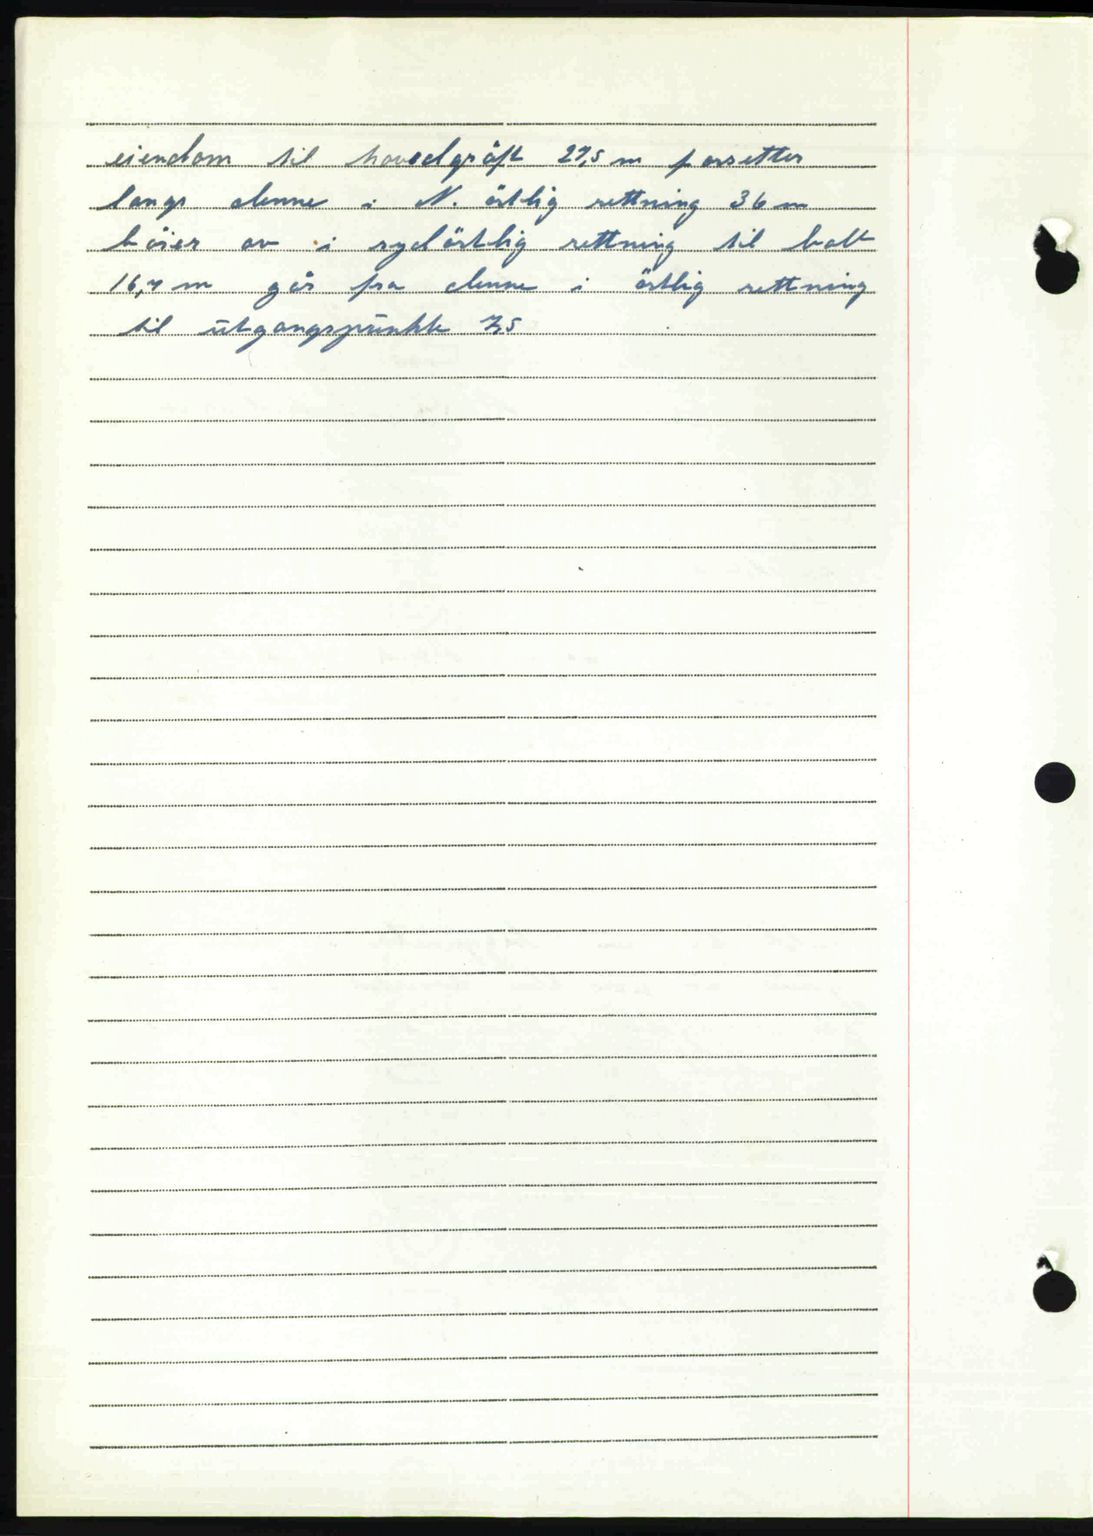 eiendom til hovedgröft 27,5 m forsetter
langs denne i N. östlig rettning 36 m
böier av i sydöstlig rettning til bolt
16,7 m går fra denne i östlig rettning
til utgangspunkte 7,5